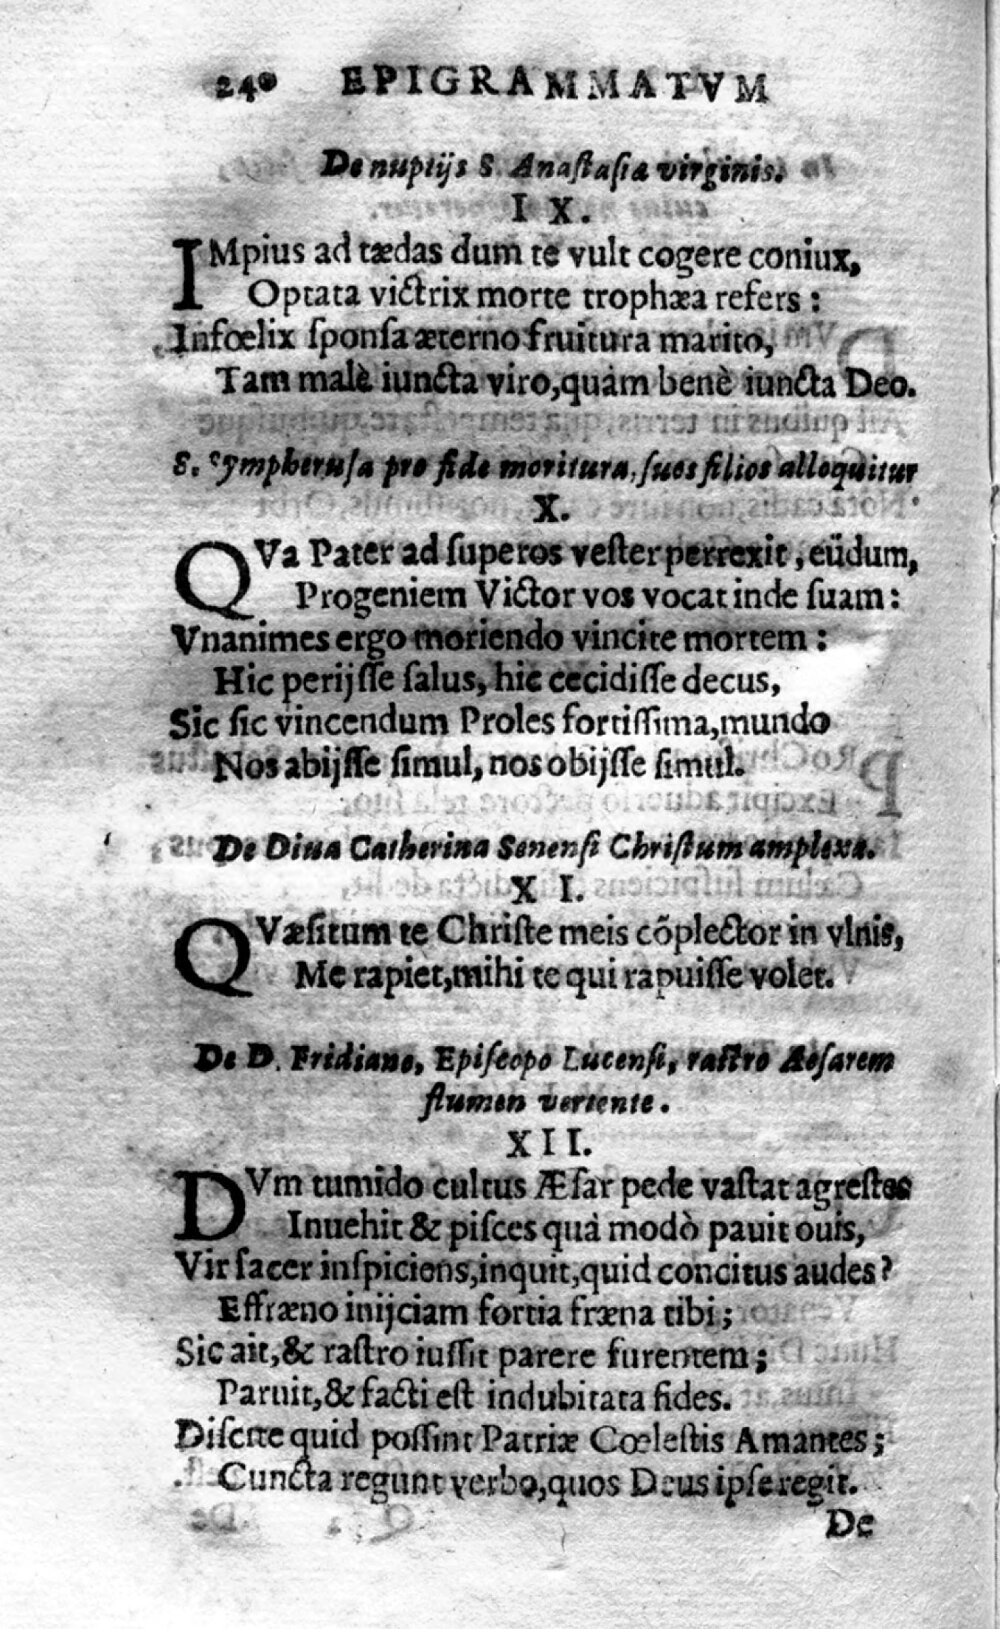 240 EPIGRAMMATVM
De nuptijs S. Anastasiæ virginis.
IX.
IMpius ad tædas dum te vult cogere coniux,
Optata victrix morte trophæa refers:
Infœlix sponsa æterno fruitura marito,
Tam malè iuncta viro, quàm benè iuncta Deo.
S. Sympherusa pro fide moritura, suos filios alloquitur
X.
QVa Pater ad superos vester perrexit, eüdum,
Progeniem Victor vos vocat inde suam:
Vnanimes ergo moriendo vincite mortem:
Hic perijsse salus, hic cecidisse decus,
Sic sic vincendum Proles fortissima, mundo
Nos abijsse simul, nos obijsse simul.
De Diua Catherina Senensi Christum amplexa.
XI.
QVæsitum te Christe meis cõplector in vlnis,
Me rapiet, mihi te qui rapuisse volet.
De D. Fridiano, Episcopo Lucensi, rastro Aesarem
flumen vertente.
XII.
DVm tumido cultus Æsar pede vastat agrestes
Inuehit & pisces quà modò pauit ouis,
Vir sacer inspiciens, inquit, quid concitus audes?
Effræno inijciam fortia fræna tibi;
Sic ait, & rastro iussit parere furentem;
Paruit, & facti est indubitata fides.
Discite quid possint Patriæ Cœlestis Amantes;
Cuncta regunt verbo, quos Deus ipse regit.
De